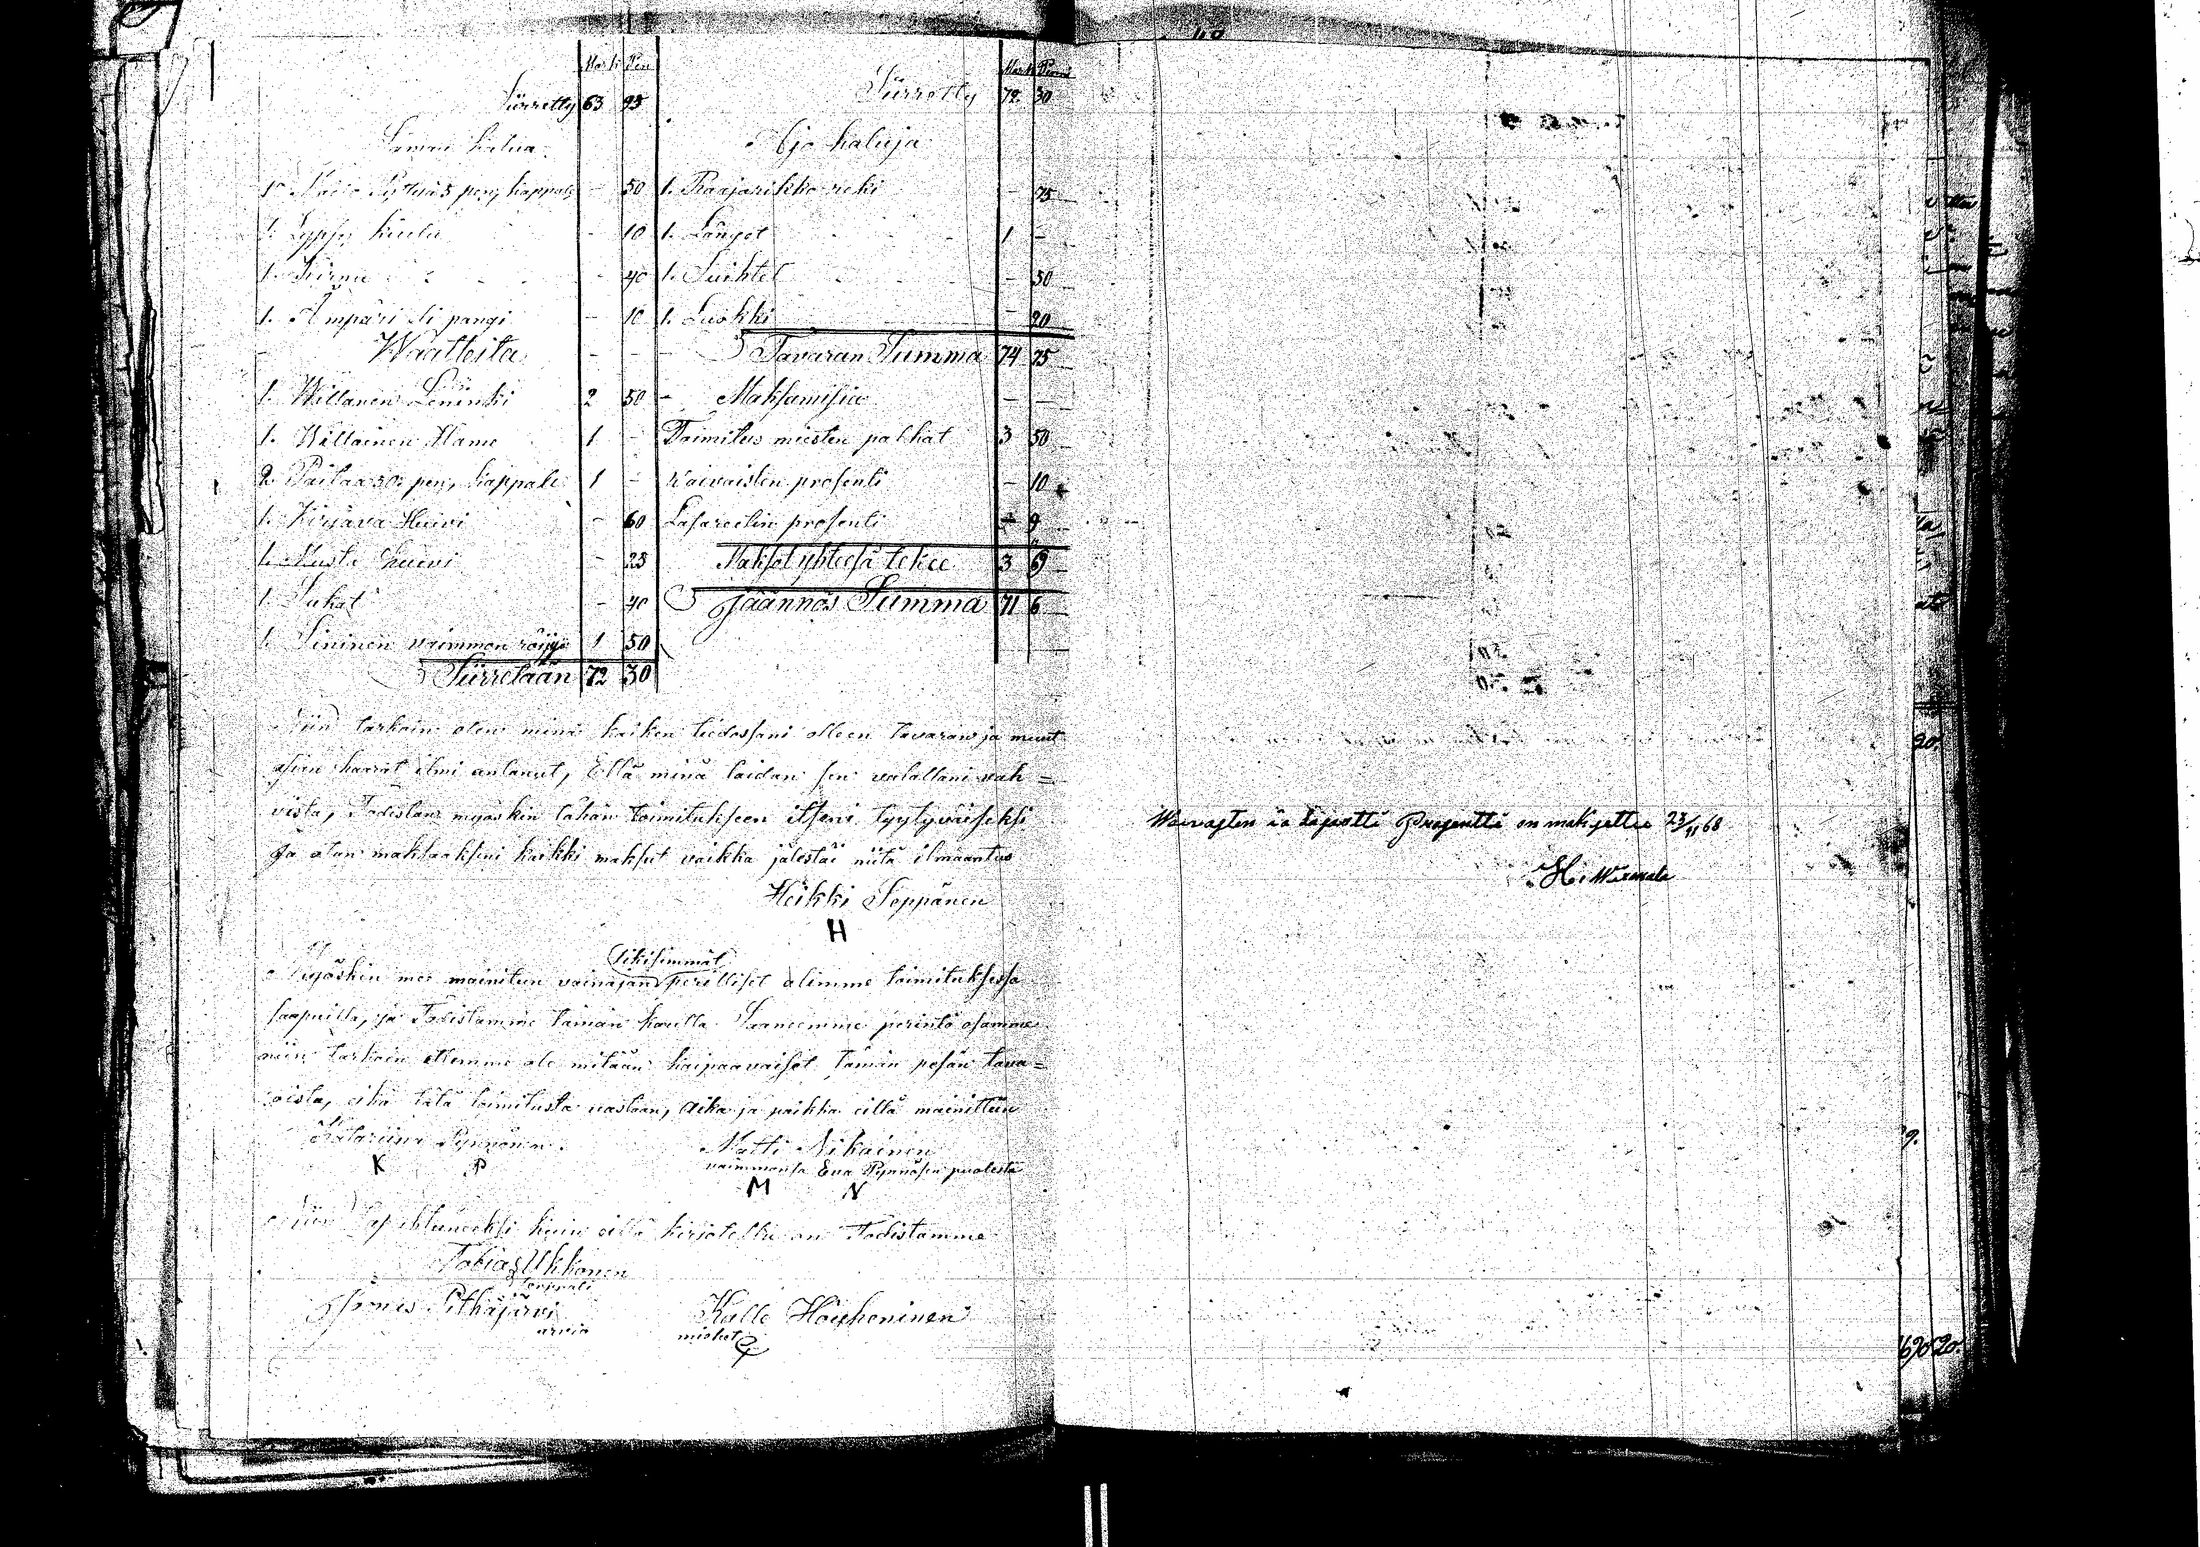 Mark Pen
Siirretty 63 95
Saman kalua
10 Pyttyä 5 pen, kappale - 50
1. Lypsy kiulu - 10
1. Kirnu - 40
1. Ämpäri eli pangi - 10
Waatteita - -
1. Willanen Leninki 2 50
1. Willainen Hame 1 -
2. Paitaa 50 pen, kappale 1 -
1. Kirjava Huivi - 60
1. Musta huivi - 25
1. Sukat - 40
1. Sininen vaimmon röijy 1 50
Siirretään 72 30
Mark Penni
Siirretty 72 30
Ajo kaluja
1. Raajarikko reki - 75
1. Länget 1 -
1. Suihtet - 50
1. Luokki - 20
Tavaran Summa 74 75
- Maksamisia - -
Toimitus miesten palkat 3 50
vaivaisten prosenti - 10
Lasareetin prosenti - 9
Maksot yhteesä tekee 3 69
Jäännös Summa 71 6
Niin tarkoin olen minä kaiken tiedossani olleen tavaran ja muut
asian haarat ilmi antanut, Että minä taidan sen valallani vah=
vista, Todistan myöskin tähän toimitukseen itseni tyytyväiseksi
Ja otan maksaakseni kaikki maksut vaikka jälestäi niitä ilmaantuo
Heikki Seppänen
H
likisimmät
Myöskin me mainitun vainajan perilliset olimme toimituksessa
saapuilla, ja Todistamme tämän kautta Saaneemme perintö osamme
niin tarkoin ettemme ole mitään kaipaavaiset tämän pesän tava=
roista, eikä tätä toimitusta vastaan, aika ja paikka eillä mainittun
Katariina Pynnönen.
K P
Matti Nikainen
vaimmonsa Eva Pynnösen puolesta
M N
Niin tapahtuneeksi kuin eillä kirjotettu on Todistamme
Tobias Ukkonen
Joonas Pitkäjärvi Kalle Höykeninen
arvio miehet
Waivasten ja Lasaretti Prosentti on maksettu 23/11 68
H. Wirmala
20.
9.
690 20.